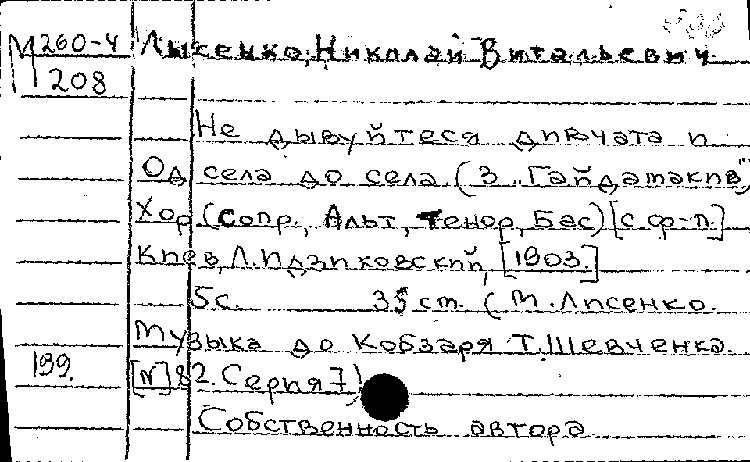 М260-4 Лысенко, Николай Витальевич
208
Не дывуйтеся дивчата и
Од села до села (З "Гайдамакив")
Хор (сопр., Альт, Тенор, Бас) [с ф-п.]
Киев, Л. Идзиковский, [1903.]
5с. 35 ст. (М. Лисенко.
Музыка до Кобзаря Т. Шевченка.
199. [N] 82. Серия 7)
Собственность автора